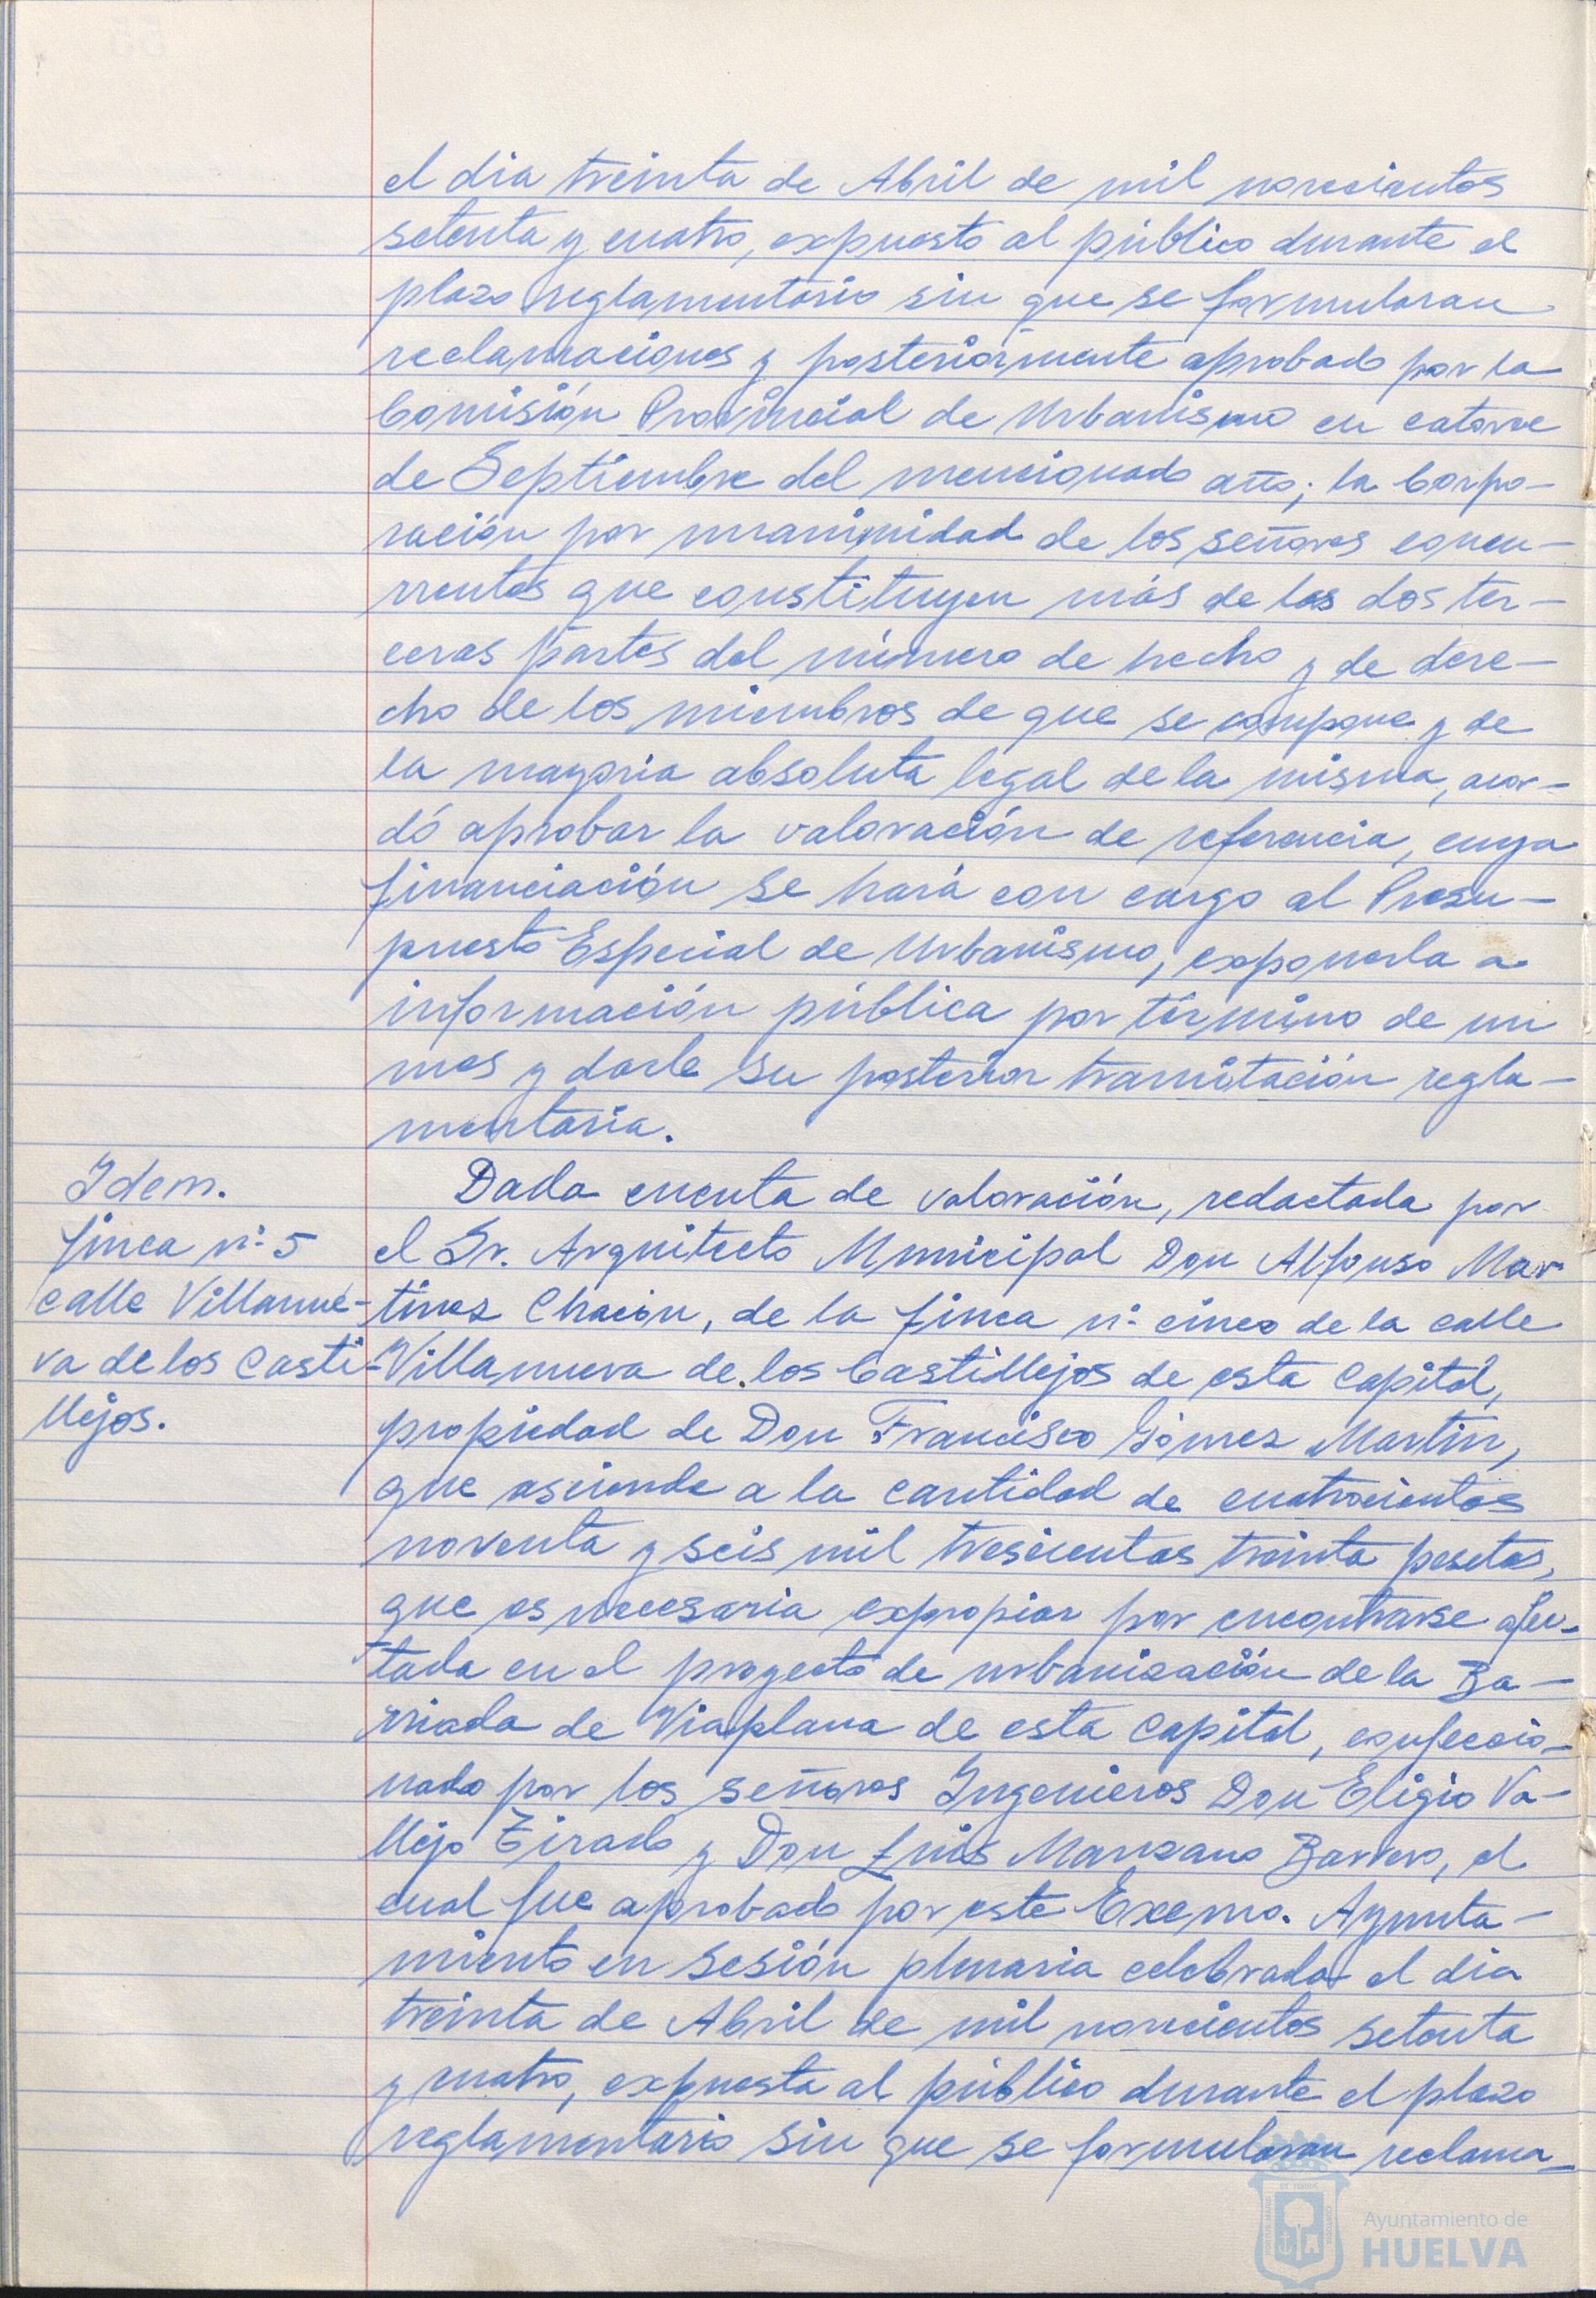 el dia treinta de Abril de mil novecientos
setenta y cuatro, expuesto al público durante el
plazo reglamentario sin que se formularan
reclamaciones y posteriormente aprobado por la
Comisión Provincial de Urbanismo en catorce
de Septiembre del mencionado año; la Corpo-
ración por unanimidad de los señores concu-
rrentes que constituyen más de las dos ter-
ceras partes del número de hecho y de dere-
cho de los miembros de que se compone y de
la mayoria absoluta legal de la misma, acor-
dó aprobar la valoración de referencia, cuya
financiación se hará con cargo al Presu-
puesto Especial de Urbanismo, exponerla a
información pública por término de un
mes y darle su posterior tramitación regla-
mentaria.
Idem.
finca nº 5
calle Villanue-
va de los Casti-
llejos.
Dada cuenta de valoración, redactada por
el Sr. Arquitecto Municipal Don Alfonso Mar-
tinez Chacón, de la finca nº cinco de la calle
Villanueva de los Castillejos de esta Capital,
propiedad de Don Francisco Gómez Martin,
que asciende a la cantidad de cuatrocientas
noventa y seis mil trescientas treinta pesetas,
que es necesaria expropiar por encontrarse afec-
tada en el proyecto de urbanización de la Ba-
rriada de Viaplana de esta Capital, confeccio-
nado por los señores Ingenieros Don Eligio Va-
llejo Tirado y Don Luis Manzano Barrero, el
cual fue aprobado por este Excmo. Ayunta-
miento en sesión plenaria celebrada el dia
treinta de Abril de mil novecientos setenta
y cuatro, expuesta al público durante el plazo
reglamentario sin que se formularan reclama-
Ayuntamiento de
HUELVA